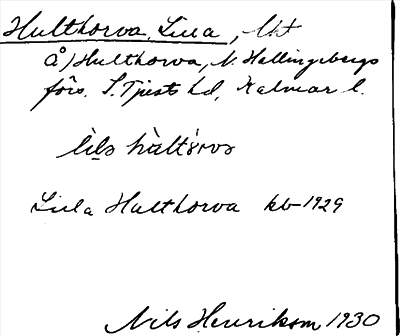 Hulthorva, Lilla, lht
å) Hulthorva, N. Hallingebergs
förs. S. Tjusts hd, Kalmar l.
lìls hàltórvo
Lilla Hulthorva kb 1929
Nils Henrikson 1930